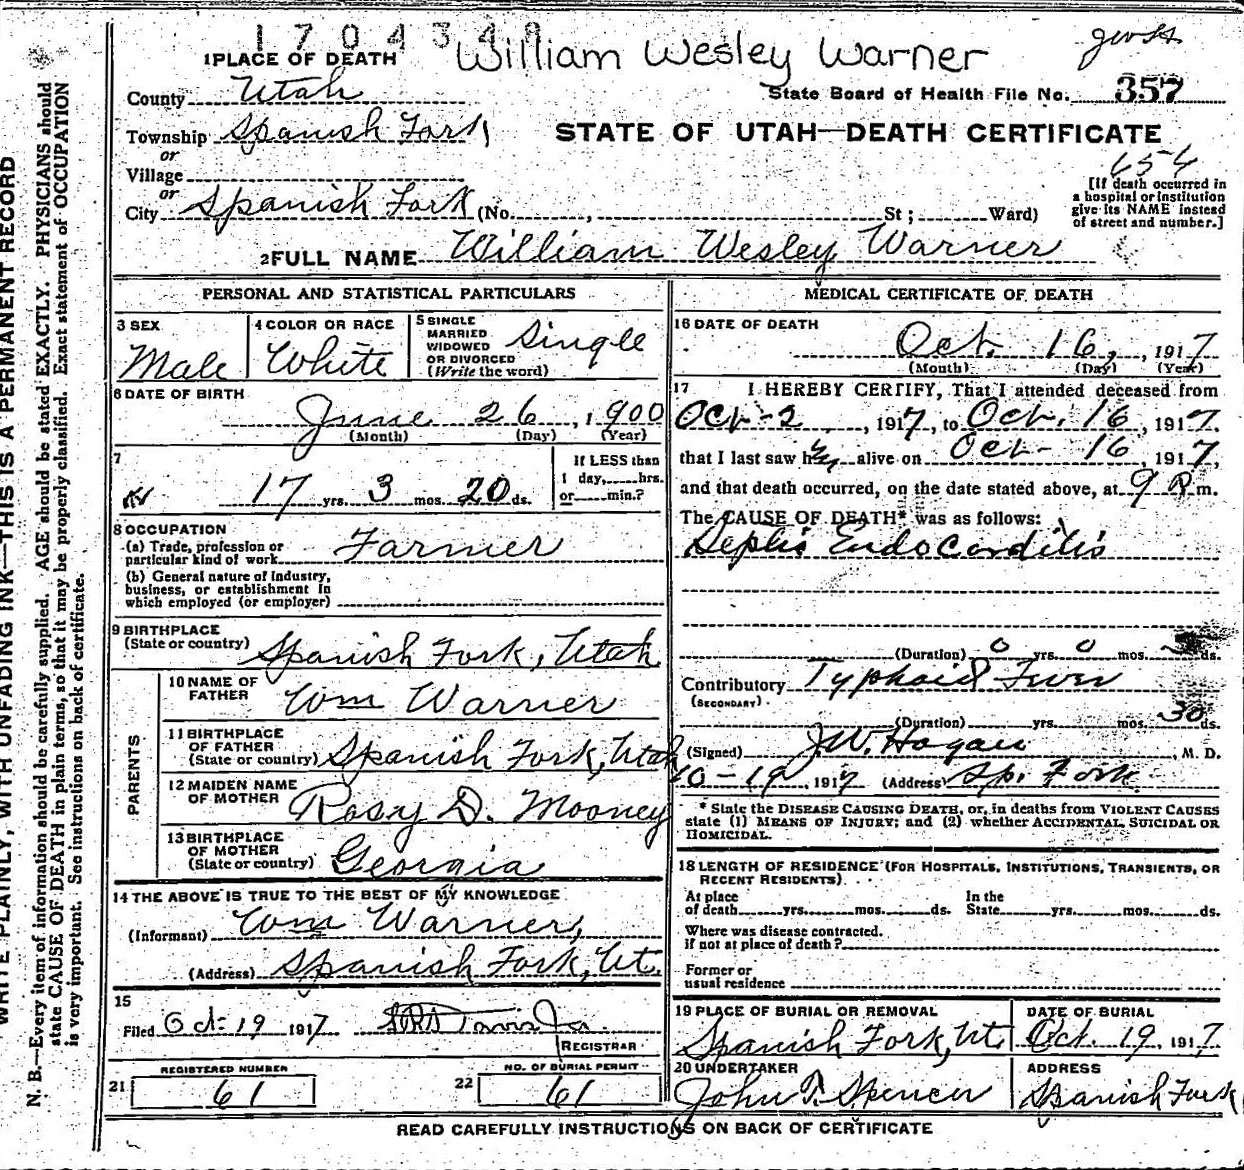 170434
William Wesley Warner
1 PLACE OF DEATH
County Utah
State Board of Health File No. 357
Township Spanish Fork
STATE OF UTAH—DEATH CERTIFICATE
or
Village
654
or
City Spanish Fork (No. , St; Ward)
[If death occurred in
a hospital or institution
give its NAME instead
of street and number.]
2 FULL NAME William Wesley Warner
PERSONAL AND STATISTICAL PARTICULARS
3 SEX
Male
4 COLOR OR RACE
White
5 SINGLE
MARRIED
WIDOWED
OR DIVORCED
(Write the word)
Single
6 DATE OF BIRTH
June 26, 1900
(Month) (Day) (Year)
7
17 yrs. 3 mos. 20 ds.
If LESS than
1 day, hrs.
or min.?
8 OCCUPATION
(a) Trade, profession or
particular kind of work Farmer
(b) General nature of Industry,
business, or establishment in
which employed (or employer)
9 BIRTHPLACE
(State or country) Spanish Fork, Utah
PARENTS
10 NAME OF
FATHER Wm Warner
11 BIRTHPLACE
OF FATHER
(State or country) Spanish Fork, Utah
12 MAIDEN NAME
OF MOTHER Rosy D. Mooney
13 BIRTHPLACE
OF MOTHER
(State or country) Georgia
14 THE ABOVE IS TRUE TO THE BEST OF MY KNOWLEDGE
(Informant) Wm Warner,
(Address) Spanish Fork, Ut.
15
Filed Oct. 19 1917
REGISTRAR
REGISTERED NUMBER
21 61
NO. OF BURIAL PERMIT
22 61
MEDICAL CERTIFICATE OF DEATH
16 DATE OF DEATH
Oct. 16, , 1917
(Month) (Day) (Year)
17 I HEREBY CERTIFY, That I attended deceased from
Oct-2 , 1917, to Oct. 16, 1917.
that I last saw him alive on Oct- 16, 1917,
and that death occurred, on the date stated above, at 9 P.m.
The CAUSE OF DEATH* was as follows:
Septis Endocarditis
(Duration) 0 yrs. 0 mos. ds.
Contributory Typhoid Fever
(SECONDARY)
(Duration) yrs. mos. 30 ds.
(Signed) J.W. Hagan, M. D.
10-19, 1917 (Address) Sp. Fork
* State the DISEASE CAUSING DEATH, or, in deaths from VIOLENT CAUSES
state (1) MEANS OF INJURY; and (2) whether ACCIDENTAL, SUICIDAL OR
HOMICIDAL.
18 LENGTH OF RESIDENCE (FOR HOSPITALS, INSTITUTIONS, TRANSIENTS, OR
RECENT RESIDENTS)
At place
of death yrs. mos. ds.
In the
State yrs. mos. ds.
Where was disease contracted.
if not at place of death?
Former or
usual residence
19 PLACE OF BURIAL OR REMOVAL
Spanish Fork, Ut.
DATE OF BURIAL
Oct. 19, 1917
20 UNDERTAKER
John T. Spencer
ADDRESS
Spanish Fork
READ CAREFULLY INSTRUCTIONS ON BACK OF CERTIFICATE
WRITE PLAINLY, WITH UNFADING INK—THIS IS A PERMANENT RECORD
N. B.—Every item of information should be carefully supplied. AGE should be stated EXACTLY. PHYSICIANS should
state CAUSE OF DEATH in plain terms, so that it may be properly classified. Exact statement of OCCUPATION
is very important. See instructions on back of certificate.